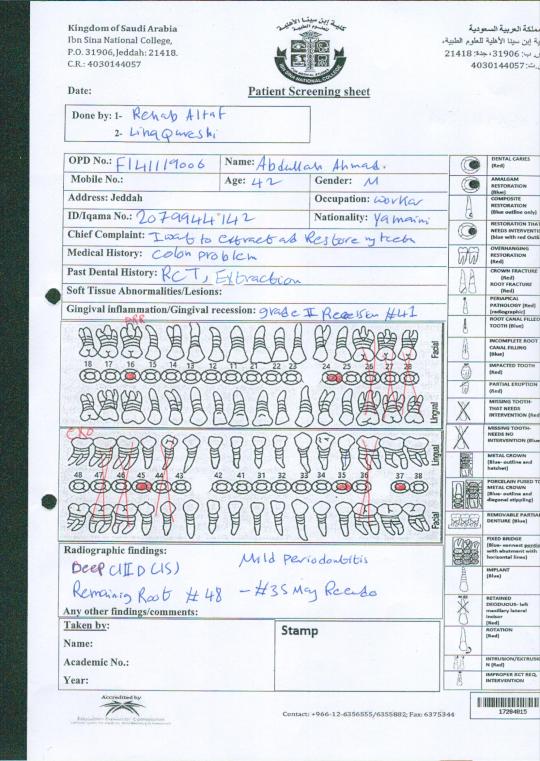 Kingdom of Saudi Arabia
Ibn Sina National College,
P.O. 31906, Jeddah: 21418.
C.R.: 4030144057
كلية إبن سينا الأهلية
للعلوم الطبية
IBN SINA NATIONAL COLLEGE
مملكة العربية السعودية
ية إبن سينا الأهلية للعلوم الطبية،
ص.ب: 31906، جدة: 21418
س.ت: 4030144057
Date:
Patient Screening sheet
Done by: 1- Rehab Altaf
2- Lina Qureshi
OPD No.: F141119006 Name: Abdullah Ahmad.
Mobile No.: Age: 42 Gender: M
Address: Jeddah Occupation: worker
ID/Iqama No.: 2079944142 Nationality: Yamaini
Chief Complaint: I want to extract and Restore my teeth
Medical History: colon problem
Past Dental History: RCT, Extraction
Soft Tissue Abnormalities/Lesions:
Gingival inflammation/Gingival recession: grade II Recession #41
Facial
18 17 16 15 14 13 12 11 21 22 23 24 25 26 27 28
Lingual
Lingual
48 47 46 45 44 43 42 41 31 32 33 34 35 36 37 38
Facial
Radiographic findings:
Mild periodontitis
Deep
Remaining Root #48 - #35 May
Any other findings/comments:
Taken by:
Name:
Academic No.:
Year:
Stamp
DENTAL CARIES
(Red)
AMALGAM
RESTORATION
(Blue)
COMPOSITE
RESTORATION
(Blue outline only)
RESTORATION THAT
NEEDS INTERVENTI
(blue with red Outli
OVERHANGING
RESTORATION
CROWN FRACTURE
(Red)
ROOT FRACTURE
(Red)
PERIAPICAL
PATHOLOGY (Red)
(radiographic)
ROOT CANAL FILLED
TOOTH (Blue)
INCOMPLETE ROOT
CANAL FILLING
(Blue)
IMPACTED TOOTH
(Red)
PARTIAL ERUPTION
(Red)
MISSING TOOTH-
THAT NEEDS
INTERVENTION (Red)
MISSING TOOTH-
NEEDS NO
INTERVENTION (Blue)
METAL CROWN
(Blue-outline and
hatches)
PORCELAIN FUSED TO
METAL CROWN
(Blue- outline and
diagonal stippling)
REMOVABLE PARTIAL
DENTURE (Blue)
FIXED BRIDGE
(Blue- connect pontic
with abutment with
horizontal lines)
IMPLANT
(Blue)
RETAINED
DECIDUOUS- left
maxillary lateral
incisor
(Red)
ROTATION
(Red)
INTRUSION/EXTRUSIO
N (Red)
IMPROPER RCT REQ.
INTERVENTION
Accredited by
Contact: +966-12-6356555/6355882; Fax: 6375344
17204015